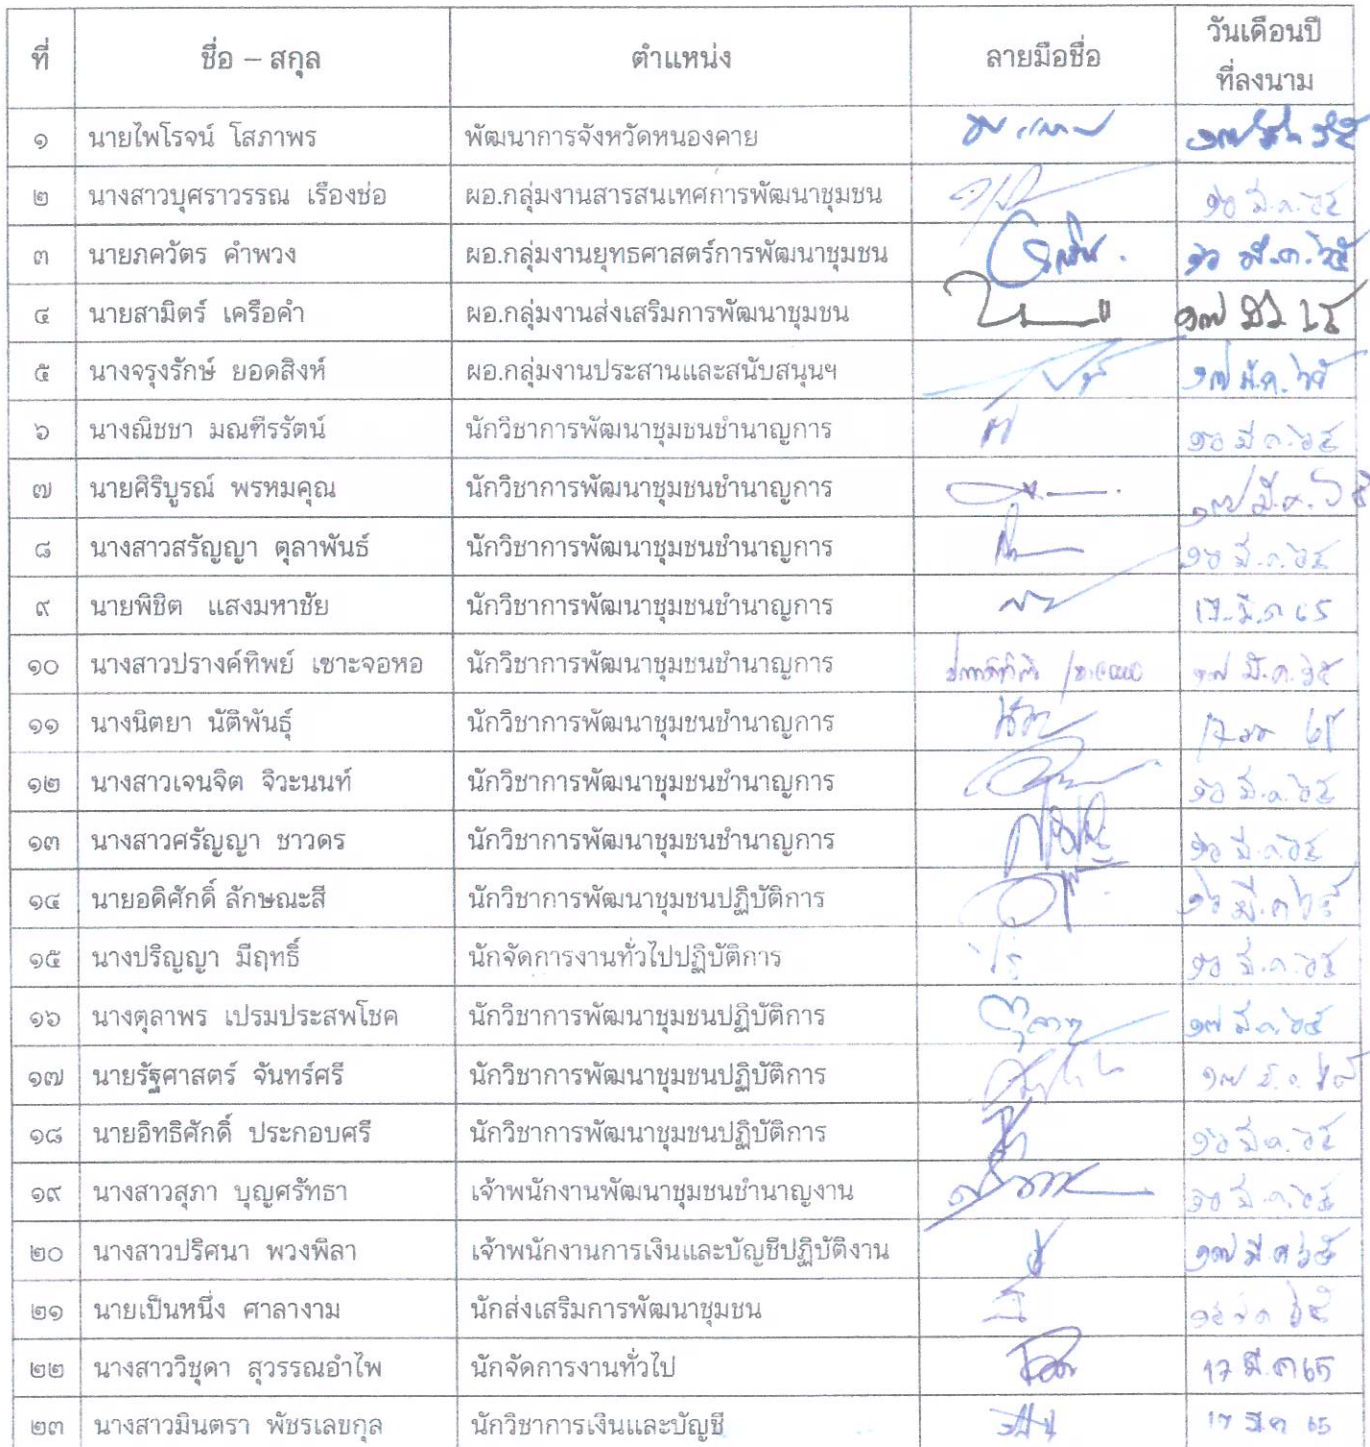 ที่ ชื่อ – สกุล ตำแหน่ง ลายมือชื่อ วันเดือนปี
ที่ลงนาม
๑ นายไพโรจน์ โสภาพร พัฒนาการจังหวัดหนองคาย
๒ นางสาวบุศราวรรณ เรืองช่อ ผอ.กลุ่มงานสารสนเทศการพัฒนาชุมชน ๑๖ มี.ค. ๖๕
๓ นายภควัตร คำพวง ผอ.กลุ่มงานยุทธศาสตร์การพัฒนาชุมชน ๑๖ มี.ค. ๖๕
๔ นายสามิตร์ เครือคำ ผอ.กลุ่มงานส่งเสริมการพัฒนาชุมชน
๕ นางจรุงรักษ์ ยอดสิงห์ ผอ.กลุ่มงานประสานและสนับสนุนฯ ๑๗ มี.ค. ๖๕
๖ นางณิชชา มณฑีรรัตน์ นักวิชาการพัฒนาชุมชนชำนาญการ ๑๖ มี.ค. ๖๕
๗ นายศิริบูรณ์ พรหมคุณ นักวิชาการพัฒนาชุมชนชำนาญการ ๑๗ มี.ค. ๖๕
๘ นางสาวสรัญญา ตุลาพันธ์ นักวิชาการพัฒนาชุมชนชำนาญการ ๑๖ มี.ค. ๖๕
๙ นายพิชิต แสงมหาชัย นักวิชาการพัฒนาชุมชนชำนาญการ 17 มี.ค 65
๑๐ นางสาวปรางค์ทิพย์ เชาะจอหอ นักวิชาการพัฒนาชุมชนชำนาญการ ๑๗ มี.ค. ๖๕
๑๑ นางนิตยา นัติพันธุ์ นักวิชาการพัฒนาชุมชนชำนาญการ
๑๒ นางสาวเจนจิต จิวะนนท์ นักวิชาการพัฒนาชุมชนชำนาญการ ๑๖ มี.ค. ๖๕
๑๓ นางสาวศรัญญา ชาวดร นักวิชาการพัฒนาชุมชนชำนาญการ ๑๖ มี.ค. ๖๕
๑๔ นายอดิศักดิ์ ลักษณะสี นักวิชาการพัฒนาชุมชนปฏิบัติการ ๑๖ มี.ค ๖๕
๑๕ นางปริญญา มีฤทธิ์ นักจัดการงานทั่วไปปฏิบัติการ ๑๖ มี.ค. ๖๕
๑๖ นางตุลาพร เปรมประสพโชค นักวิชาการพัฒนาชุมชนปฏิบัติการ ๑๗ มี.ค. ๖๕
๑๗ นายรัฐศาสตร์ จันทร์ศรี นักวิชาการพัฒนาชุมชนปฏิบัติการ ๑๗ มี.ค. ๖๕
๑๘ นายอิทธิศักดิ์ ประกอบศรี นักวิชาการพัฒนาชุมชนปฏิบัติการ ๑๖ มี.ค. ๖๕
๑๙ นางสาวสุภา บุญศรัทธา เจ้าพนักงานพัฒนาชุมชนชำนาญงาน ๑๖ มี.ค. ๖๕
๒๐ นางสาวปริศนา พวงพิลา เจ้าพนักงานการเงินและบัญชีปฏิบัติงาน ๑๗ มี ค ๖๕
๒๑ นายเป็นหนึ่ง ศาลางาม นักส่งเสริมการพัฒนาชุมชน
๒๒ นางสาววิชุดา สุวรรณอำไพ นักจัดการงานทั่วไป 17 มี.ค 65
๒๓ นางสาวมินตรา พัชรเลขกุล นักวิชาการเงินและบัญชี 17 มี.ค 65